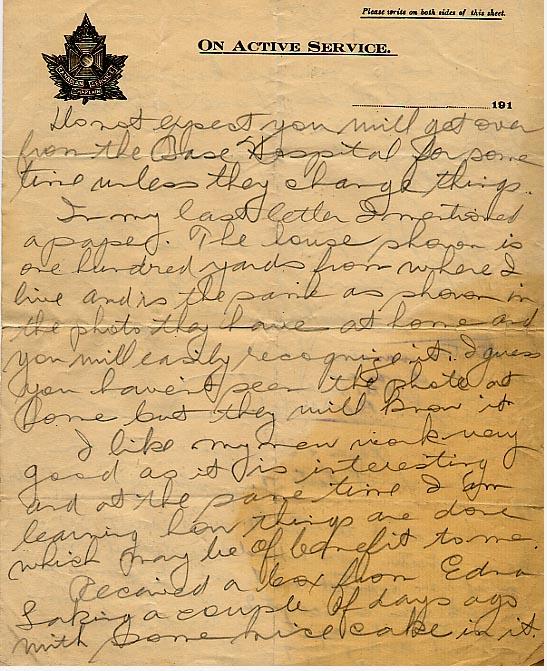 Please write on both sides of this sheet.
ON ACTIVE SERVICE.
191
Do not expect you will get over
from the Base Hospital for some
time unless they change things.
In my last letter I mentioned
a paper. The house shown is
one hundred yards from where I
live and is the same as shown in
the photo they have at home and
you will easily recognize it. I guess
you haven't seen the photo at
home but they will know it
I like my new work very
good as it is interesting
and at the same time I am
learning how things are done
which may be of benefit to me.
Received a box from Edna
Laking a couple of days ago
with some nice cake in it.